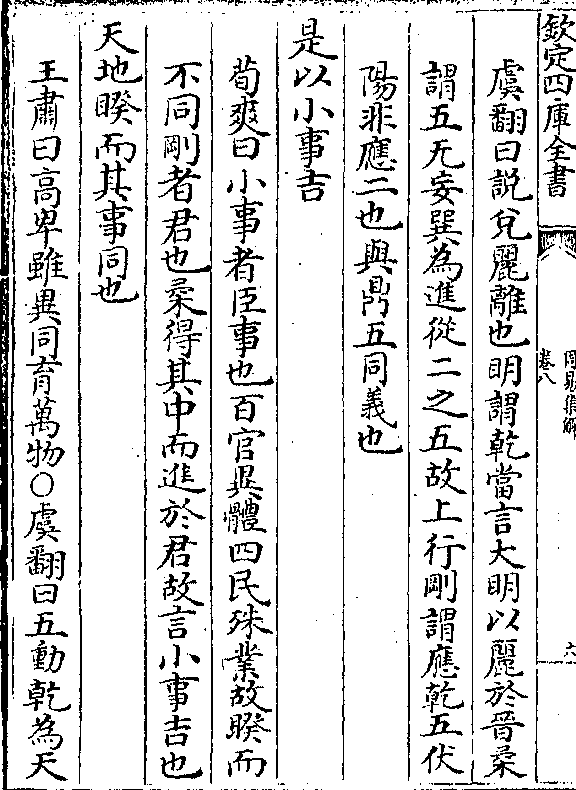 欽定四庫全書
周易集解
卷八
六
虞翻曰説兌麗離也明謂乾當言大明以麗於晉柔
謂五无妄巽為進從二之五故上行剛謂應乾五伏
陽非應二也與鼎五同義也
是以小事吉
荀爽曰小事者臣事也百官異體四民殊業故睽而
不同剛者君也柔得其中而進於君故言小事吉也
天地睽而其事同也
王肅曰高卑雖異同育萬物○虞翻曰五動乾為天